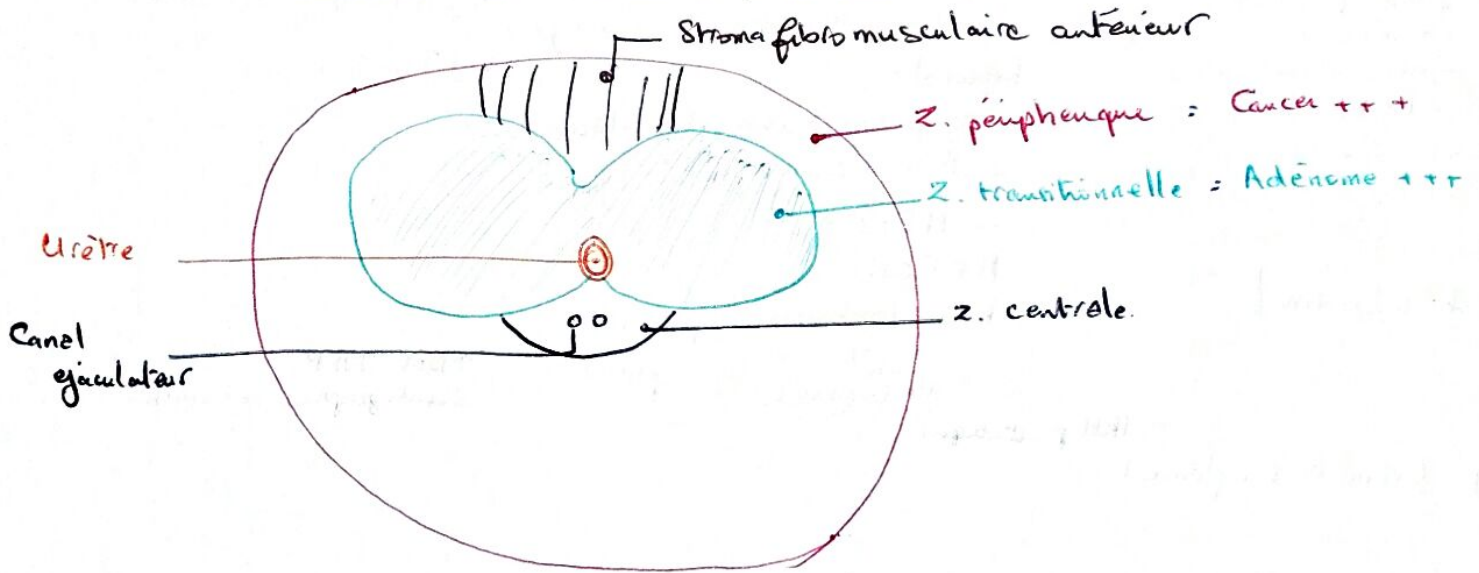 Stroma fibromusculaire antérieur
Z. périphérique : Cancer + + +
Z. transitionnelle : Adénome + + +
Urètre
Z. centrale.
Canal
éjaculateur